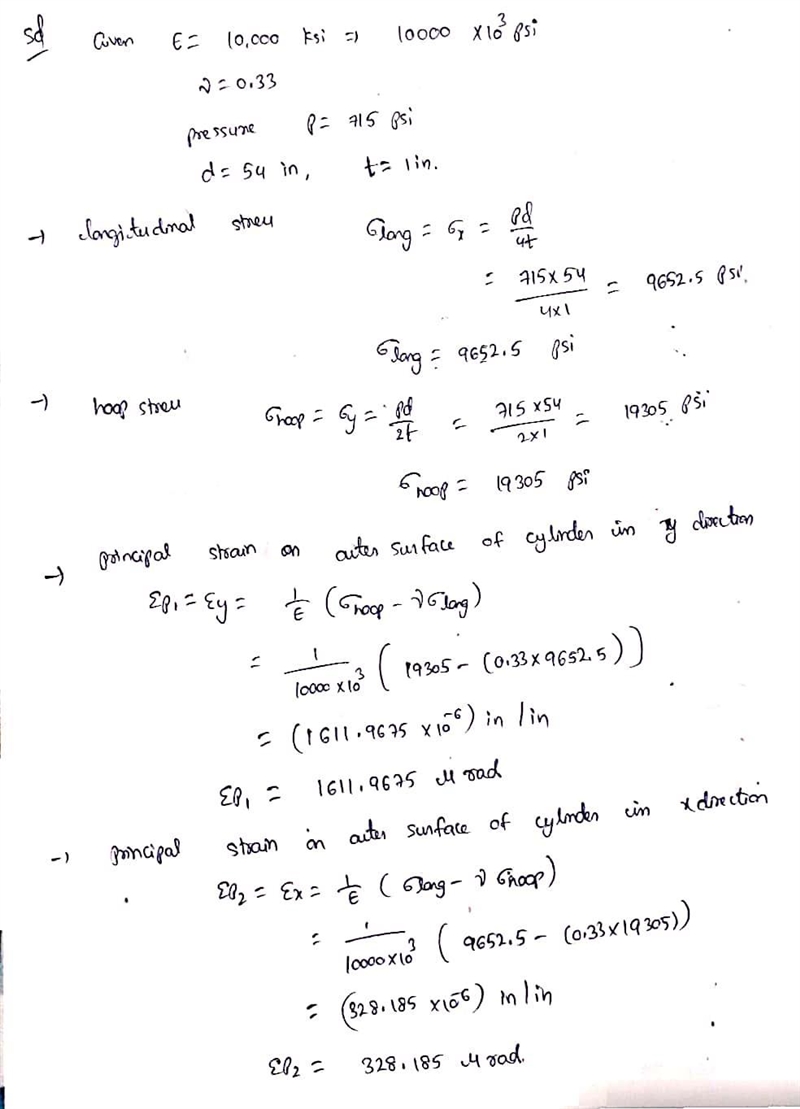 Sol Given E = 10,000 ksi ⇒ 10000 × 10³ psi
ν = 0.33
pressure P = 715 psi
d = 54 in, t = 1 in.
→ longitudnal stress σlong = σx = Pd/4t
= 715 × 54 / 4×1 = 9652.5 psi.
σlong = 9652.5 psi
→ hoop stress σhoop = σy = Pd/2t = 715 × 54 / 2×1 = 19305 psi
σhoop = 19305 psi
→ principal strain on outer surface of cylinder in y direction
εP1 = εy = 1/E (σhoop - νσlong)
= 1/10000 × 10³ (19305 - (0.33 × 9652.5))
= (1611.9675 × 10⁻⁶) in/in
εP1 = 1611.9675 μ rad
→ principal strain on outer surface of cylinder in x direction
εP2 = εx = 1/E (σlong - ν σhoop)
= 1/10000×10³ (9652.5 - (0.33×19305))
= (328.185 ×10⁻⁶) in/in
εP2 = 328.185 μ rad.